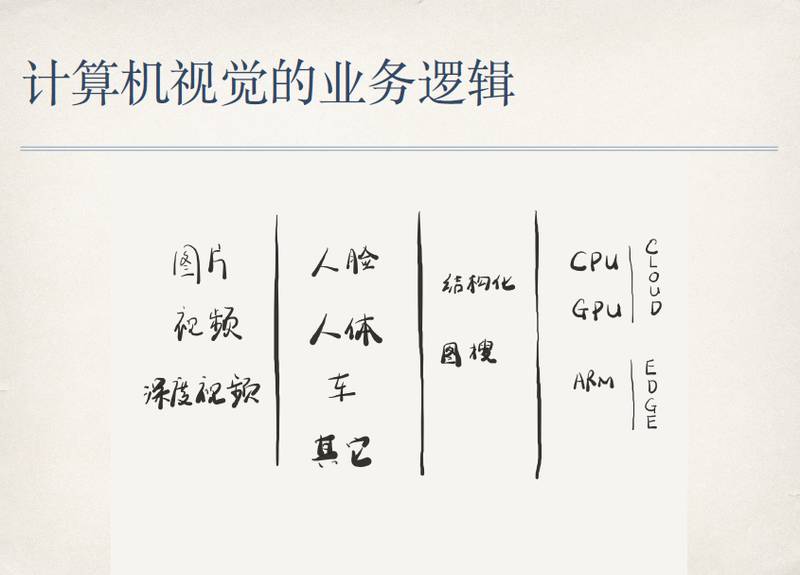 计算机视觉的业务逻辑
图片
视频
深度视频
人脸
人体
车
其它
结构化
图搜
CPU
GPU
CLOUD
ARM
EDGE